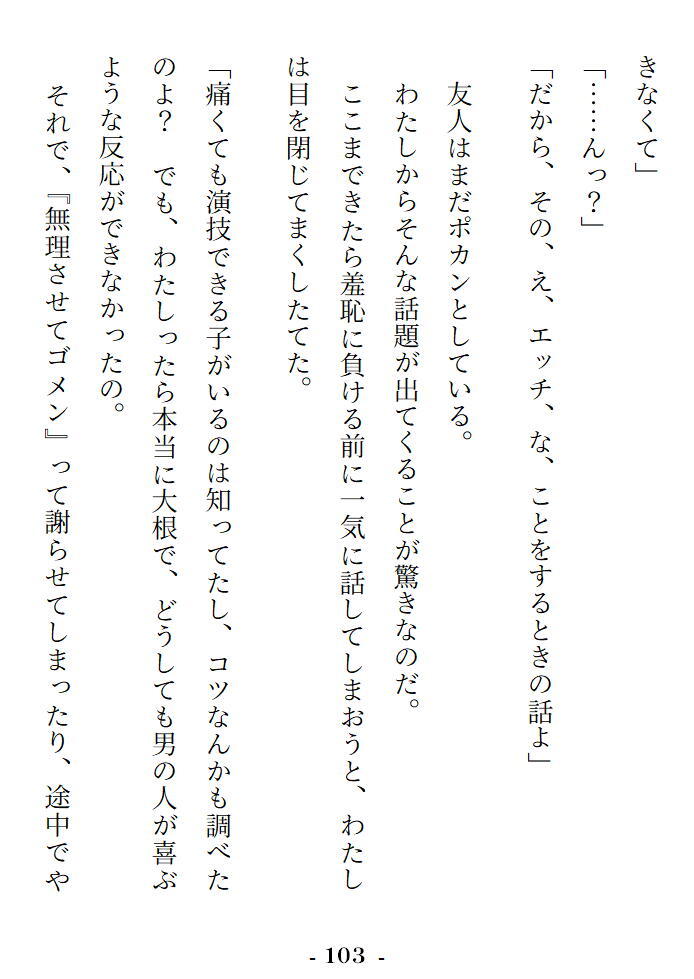 きなくて」
「……んっ？」
「だから、その、え、エッチ、な、ことをするときの話よ」
友人はまだポカンとしている。
わたしからそんな話題が出てくることが驚きなのだ。
ここまできたら羞恥に負ける前に一気に話してしまおうと、わたし
は目を閉じてまくしたてた。
「痛くても演技できる子がいるのは知ってたし、コツなんかも調べた
のよ？　でも、わたしったら本当に大根で、どうしても男の人が喜ぶ
ような反応ができなかったの。
それで、『無理させてゴメン』って謝らせてしまったり、途中でや
- 103 -